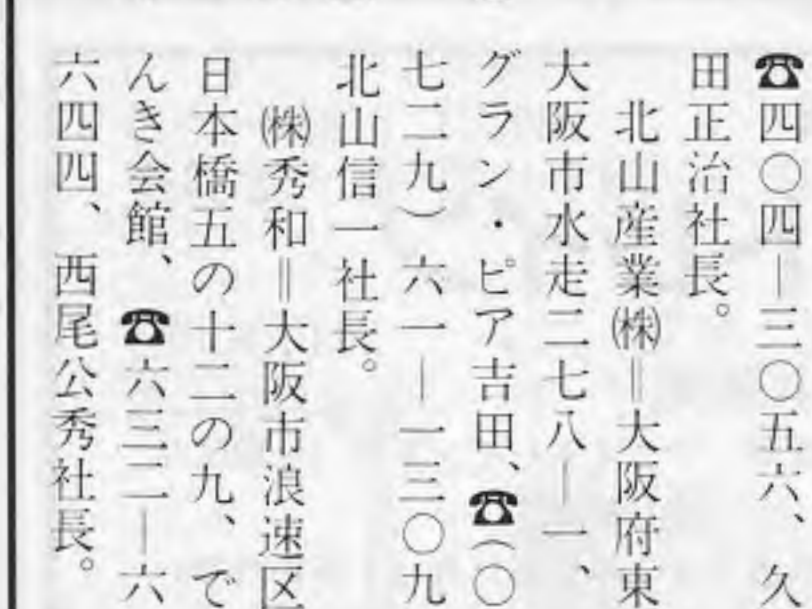 ☎四〇四―三〇五六、久
田正治社長。
北山産業㈱＝大阪府東
大阪市水走二七八―一、
グラン・ピア吉田、☎(〇
七二九)六一―一三〇九
北山信一社長。
㈱秀和＝大阪市浪速区
日本橋五の十二の九、で
んき会館、☎六三二―六
六四四、西尾公秀社長。